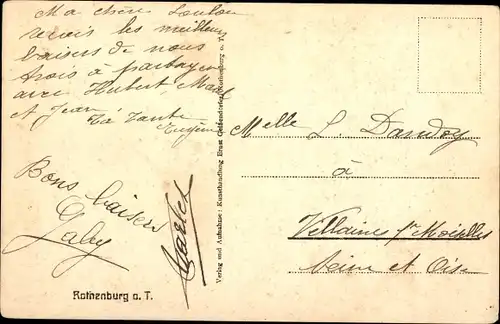 Ma chère Loulou
reçois les meilleurs
baisers de nous
trois à partager
avec Hubert,
et Jean
Ta Tante
Eugénie
Bons baisers
Gaby
Rothenburg o. T.
Verlag und Aufnahme: Kunsthandlung Ernst Rothenburg o. T.
Melle L.
à
Villaines pr Moiselles
Seine et Oise